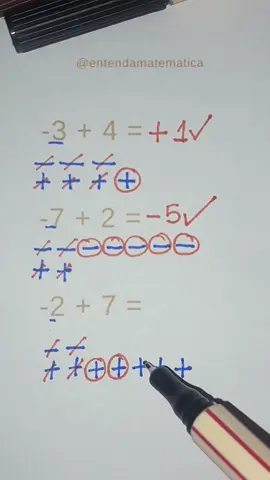 @entendamatematica
-3 + 4 = +1✓
− − −
+ + + +
-7 + 2 = -5✓
− − − − − − −
+ +
-2 + 7 =
− −
+ + + + + + +